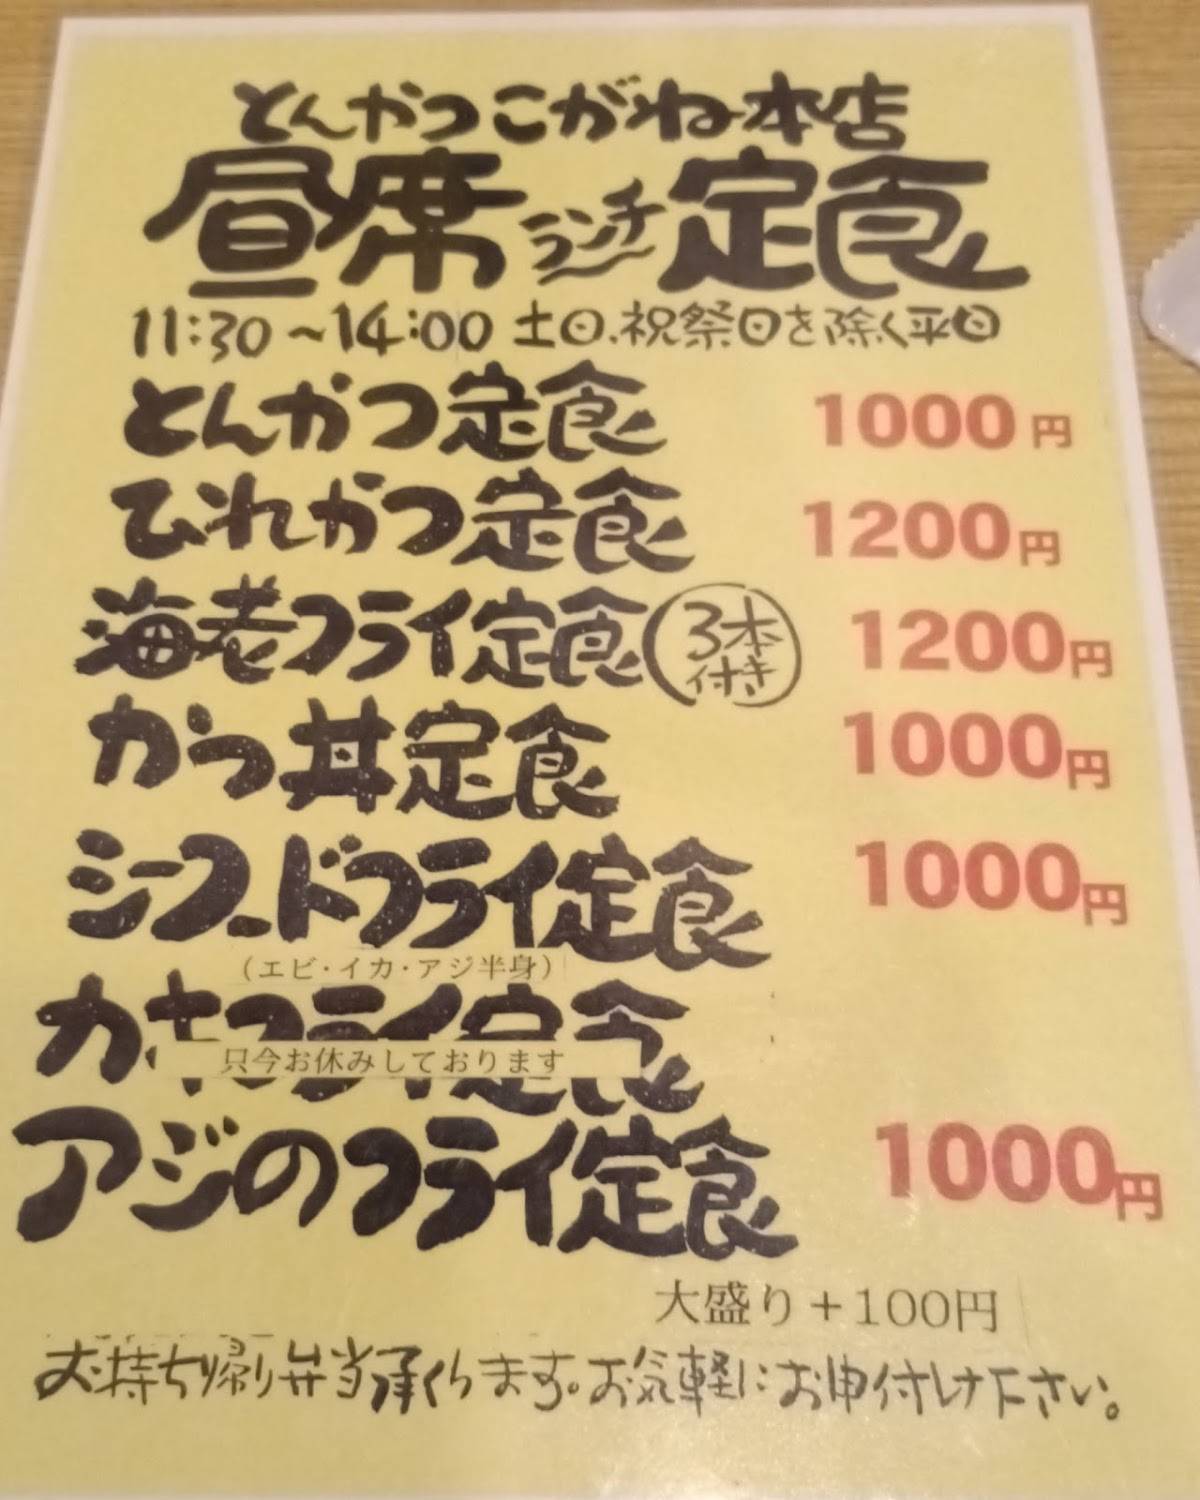 とんかつこがね本店
昼席ランチ定食
11:30～14:00 土日、祝祭日を除く平日
とんかつ定食 1000円
ひれかつ定食 1200円
海老フライ定食 3本付き 1200円
かつ丼定食 1000円
シーフードフライ定食 1000円
（エビ・イカ・アジ半身）
カキフライ定食
只今お休みしております
アジのフライ定食 1000円
大盛り＋100円
お持ち帰り弁当承ります。お気軽にお申付け下さい。